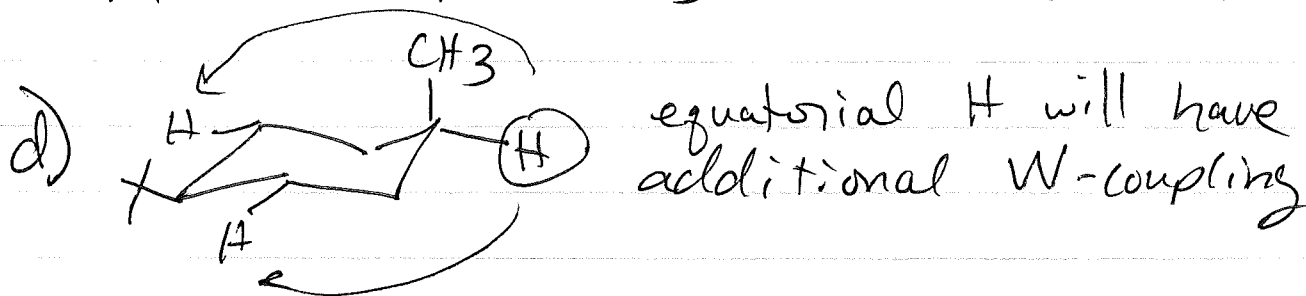 CH3
d) H H equatorial H will have
additional W-coupling
H